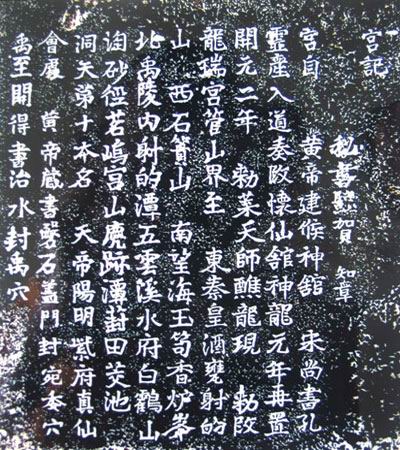 宫記
秘書監賀 知章
宫自 黄帝建候神舘 宋尚書孔
靈産入道奏改懷仙舘神龍元年再置
開元二年 勑葉天師醮龍現 勑改
龍瑞宫管山界至 東秦皇酒甕射的
山 西石簣山 南望海玉笥香炉峯
北禹陵内射的潭五雲溪水府白鶴山
淘砂徑茗嶋宫山鹿跡潭葑田茭池
洞天第十本名 天帝陽明紫府真仙
會處 黄帝藏書磐石盖門封宛委穴
禹至開得書治水封禹穴